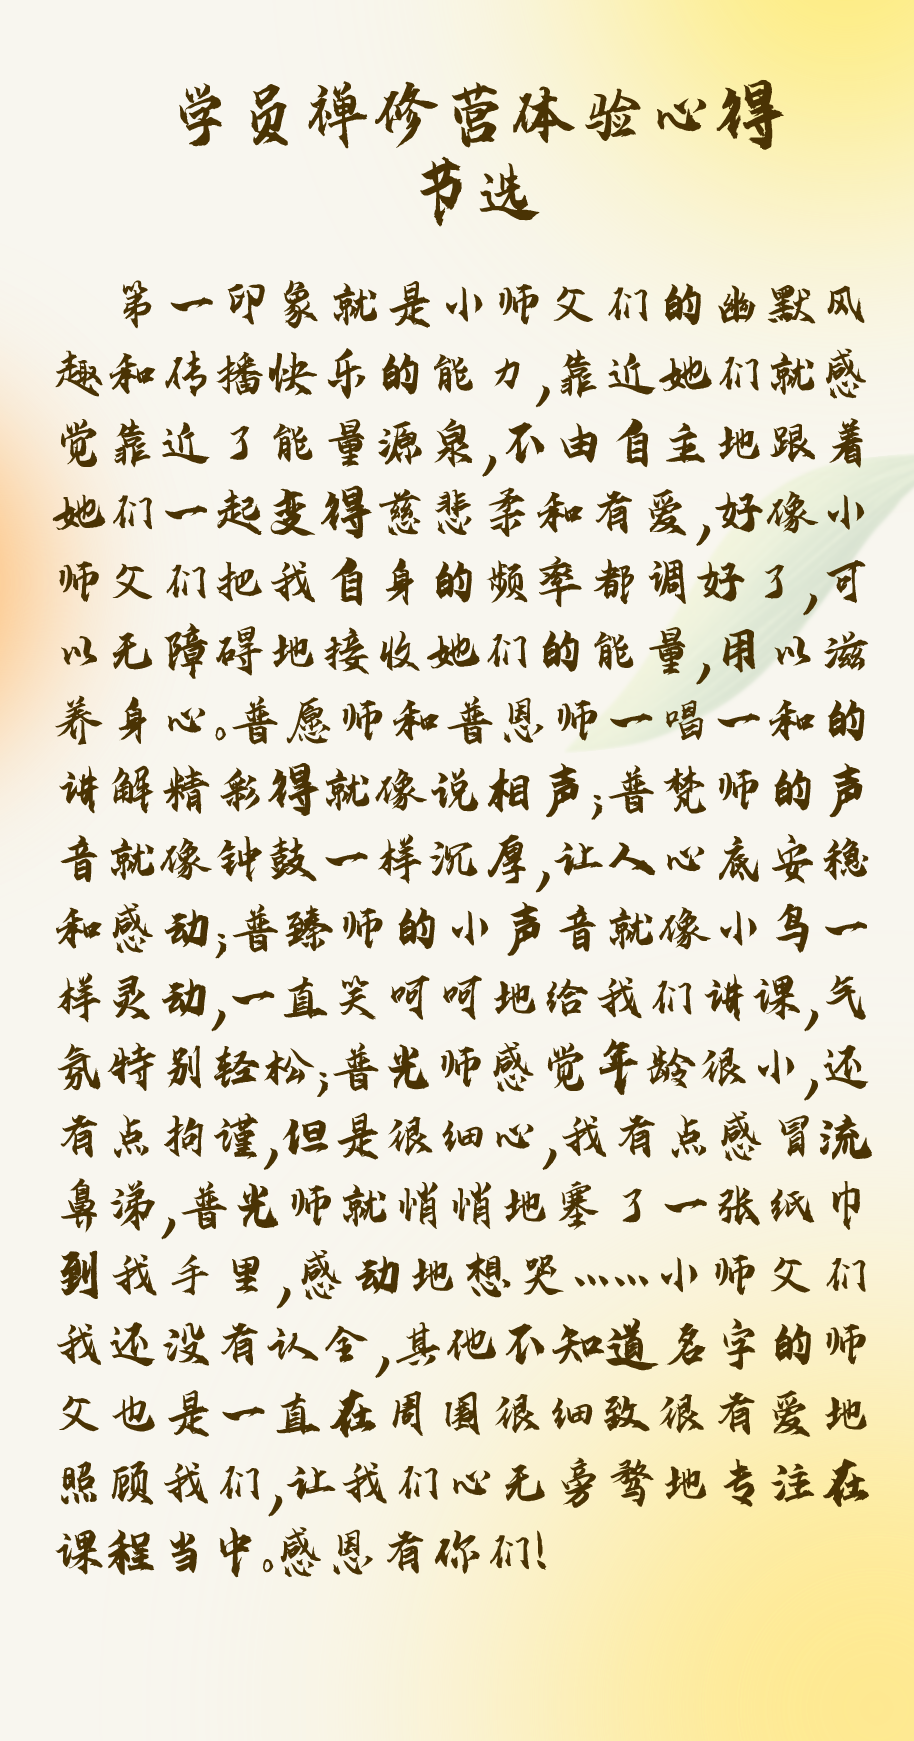 学员禅修营体验心得
节选
第一印象就是小师父们的幽默风
趣和传播快乐的能力,靠近她们就感
觉靠近了能量源泉,不由自主地跟着
她们一起变得慈悲柔和有爱,好像小
师父们把我自身的频率都调好了,可
以无障碍地接收她们的能量,用以滋
养身心。普愿师和普恩师一唱一和的
讲解精彩得就像说相声;普梵师的声
音就像钟鼓一样沉厚,让人心底安稳
和感动;普臻师的小声音就像小鸟一
样灵动,一直笑呵呵地给我们讲课,气
氛特别轻松;普光师感觉年龄很小,还
有点拘谨,但是很细心,我有点感冒流
鼻涕,普光师就悄悄地塞了一张纸巾
到我手里,感动地想哭……小师父们
我还没有认全,其他不知道名字的师
父也是一直在周围很细致很有爱地
照顾我们,让我们心无旁骛地专注在
课程当中。感恩有你们!